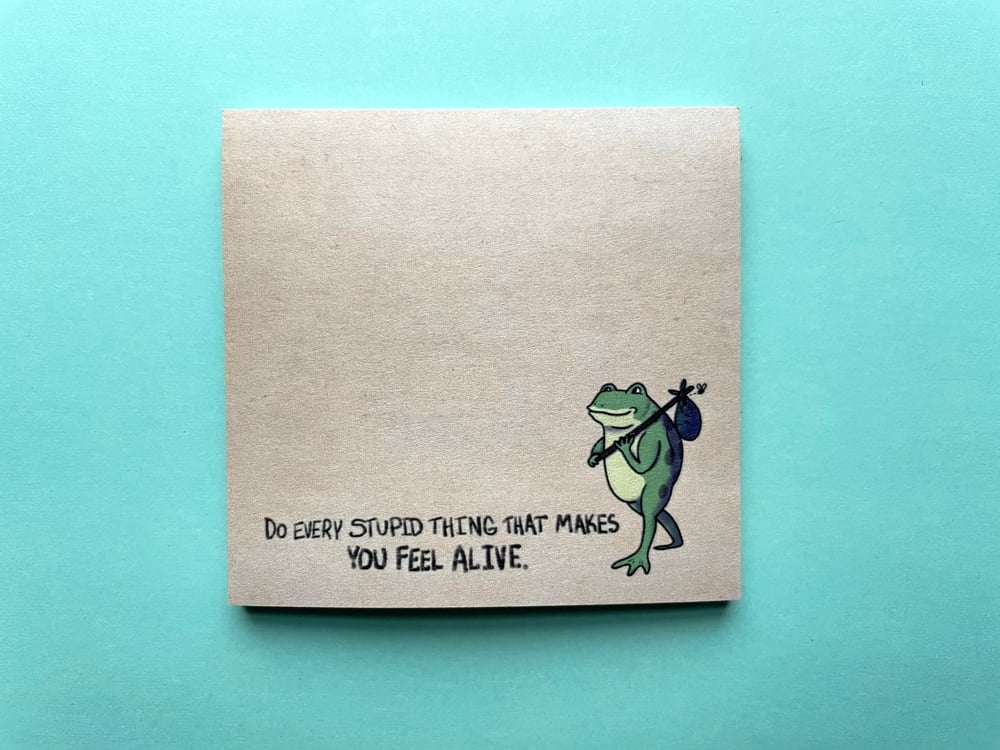 Do EVERY STUPID THING THAT MAKES
YOU FEEL ALIVE.